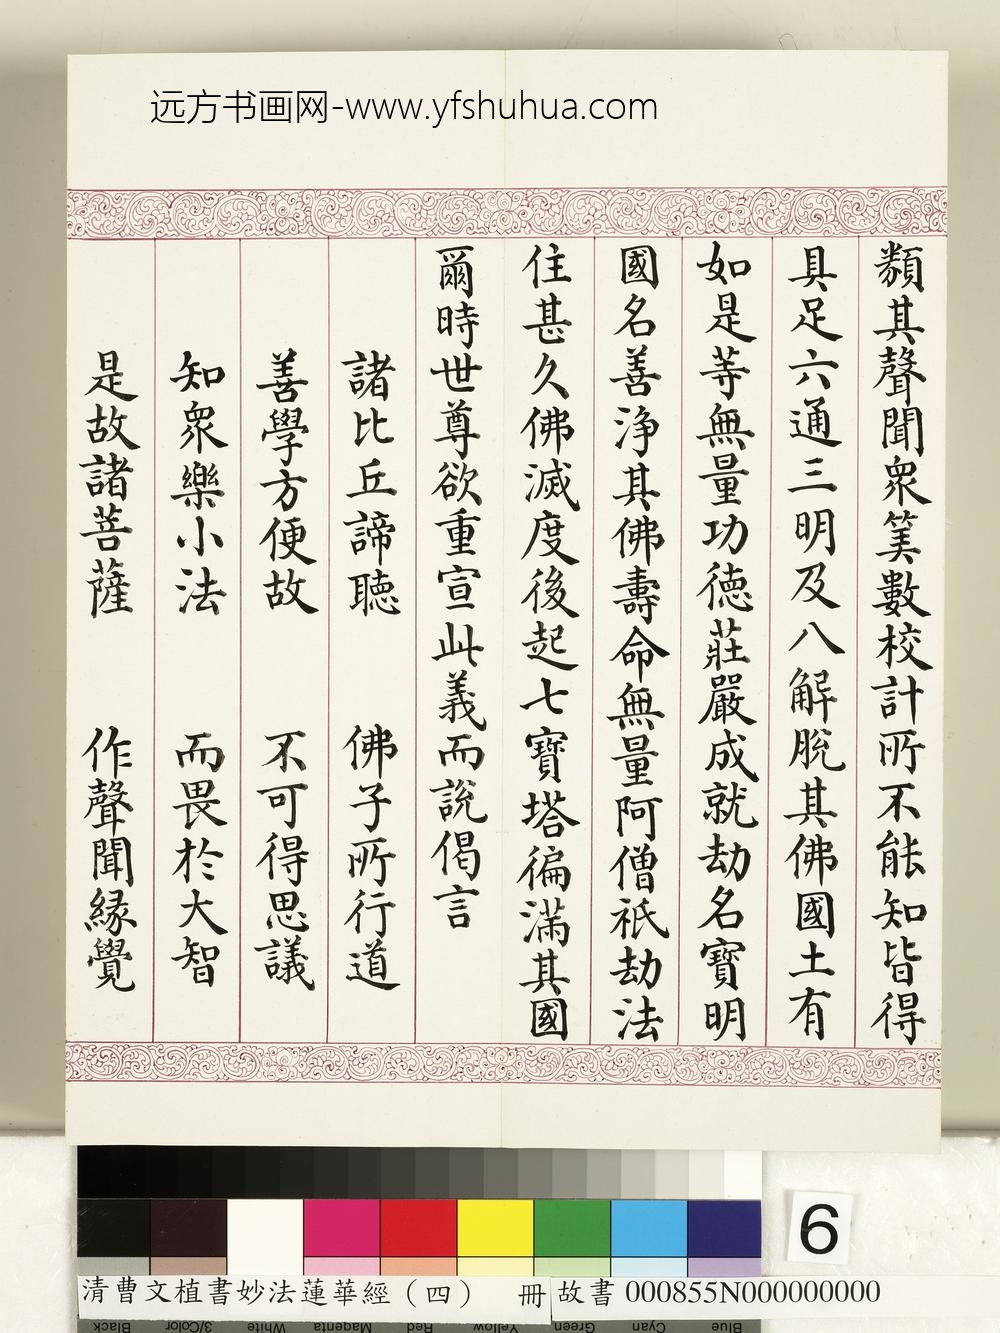 远方书画网-www.yfshuhua.com
類其聲聞眾筭數校計所不能知皆得
具足六通三明及八解脫其佛國土有
如是等無量功德莊嚴成就劫名寶明
國名善淨其佛壽命無量阿僧祇劫法
住甚久佛滅度後起七寶塔徧滿其國
爾時世尊欲重宣此義而說偈言
諸比丘諦聽 佛子所行道
善學方便故 不可得思議
知眾樂小法 而畏於大智
是故諸菩薩 作聲聞緣覺
6
清曹文植書妙法蓮華經（四） 冊 故書 000855N000000000
Black 3/Color White Magenta Red Yellow Green Cyan Blue